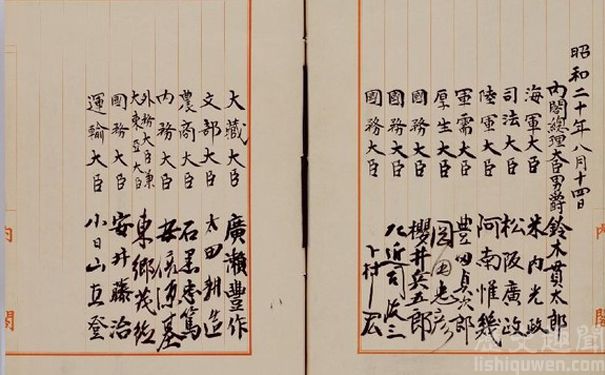 昭和二十年八月十四日
内閣總理大臣男爵鈴木貫太郎
海軍大臣 米内光政
司法大臣 松阪廣政
陸軍大臣 阿南惟幾
軍需大臣 豊田貞次郎
厚生大臣 岡田忠彦
國務大臣 櫻井兵五郎
國務大臣 左近司政三
國務大臣 下村宏
大藏大臣 廣瀬豊作
文部大臣 太田耕造
農商大臣 石黒忠篤
内務大臣 安倍源基
外務大臣兼
大東亞大臣 東郷茂徳
國務大臣 安井藤治
運輸大臣 小日山直登
内閣
内閣
趣聞
lishiquwen.com